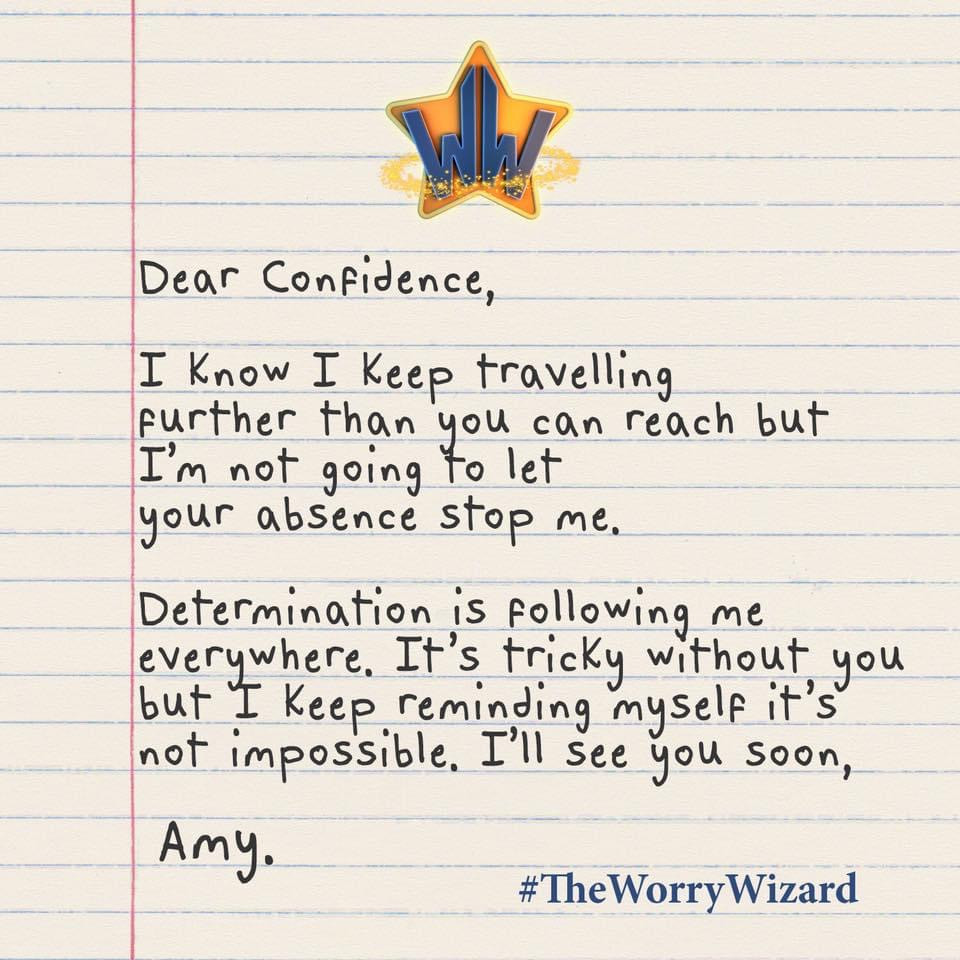 WW
Dear Confidence,
I know I keep travelling
further than you can reach but
I'm not going to let
your absence stop me.
Determination is following me
everywhere. It's tricky without you
but I keep reminding myself it's
not impossible. I'll see you soon,
Amy.
#TheWorryWizard